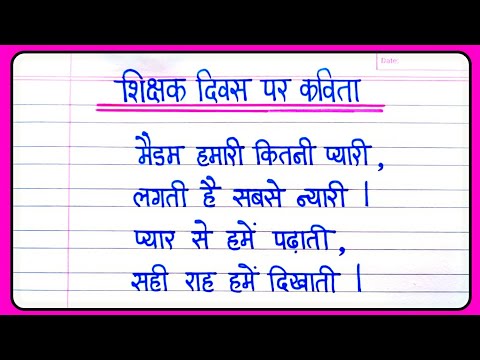 Date:
शिक्षक दिवस पर कविता
मैडम हमारी कितनी प्यारी,
लगती है सबसे न्यारी।
प्यार से हमें पढ़ाती,
सही राह हमें दिखाती।